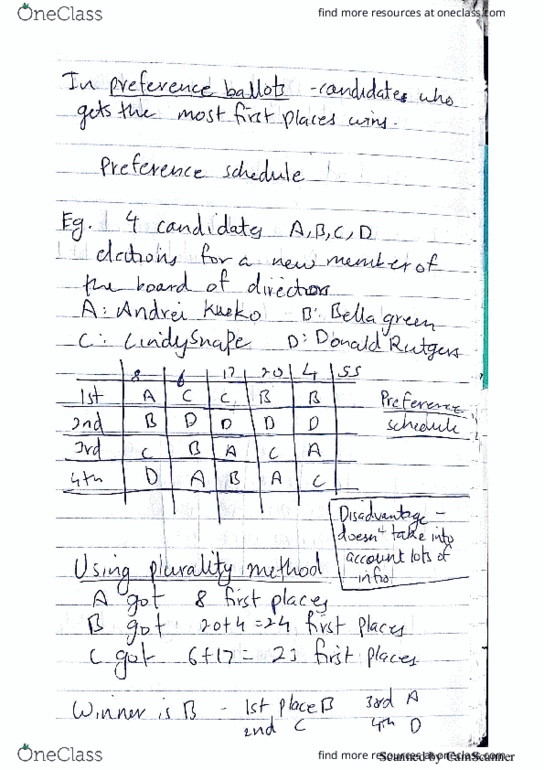 OneClass
find more resources at oneclass.com
In preference ballots - candidates who
gets the most first places wins.
Preference schedule
Eg. 4 candidates A,B,C,D
elections for a new member of
the board of directors
A: Andrei B: Bella green
C: Cindy Snape D: Donald Rutgers
8 6 17 20 4 55
1st A C C B B
2nd B D D D D
3rd C B A C A
4th D A B A C
Preference
schedule
Disadvantage -
doesn't take into
account lots of
info
Using plurality method
A got 8 first places
B got 20+4=24 first places
C got 6+17= 23 first places
Winner is B - 1st place B 3rd A
2nd C 4th D
OneClass
find more resources at oneclass.com
Scanned by CamScanner